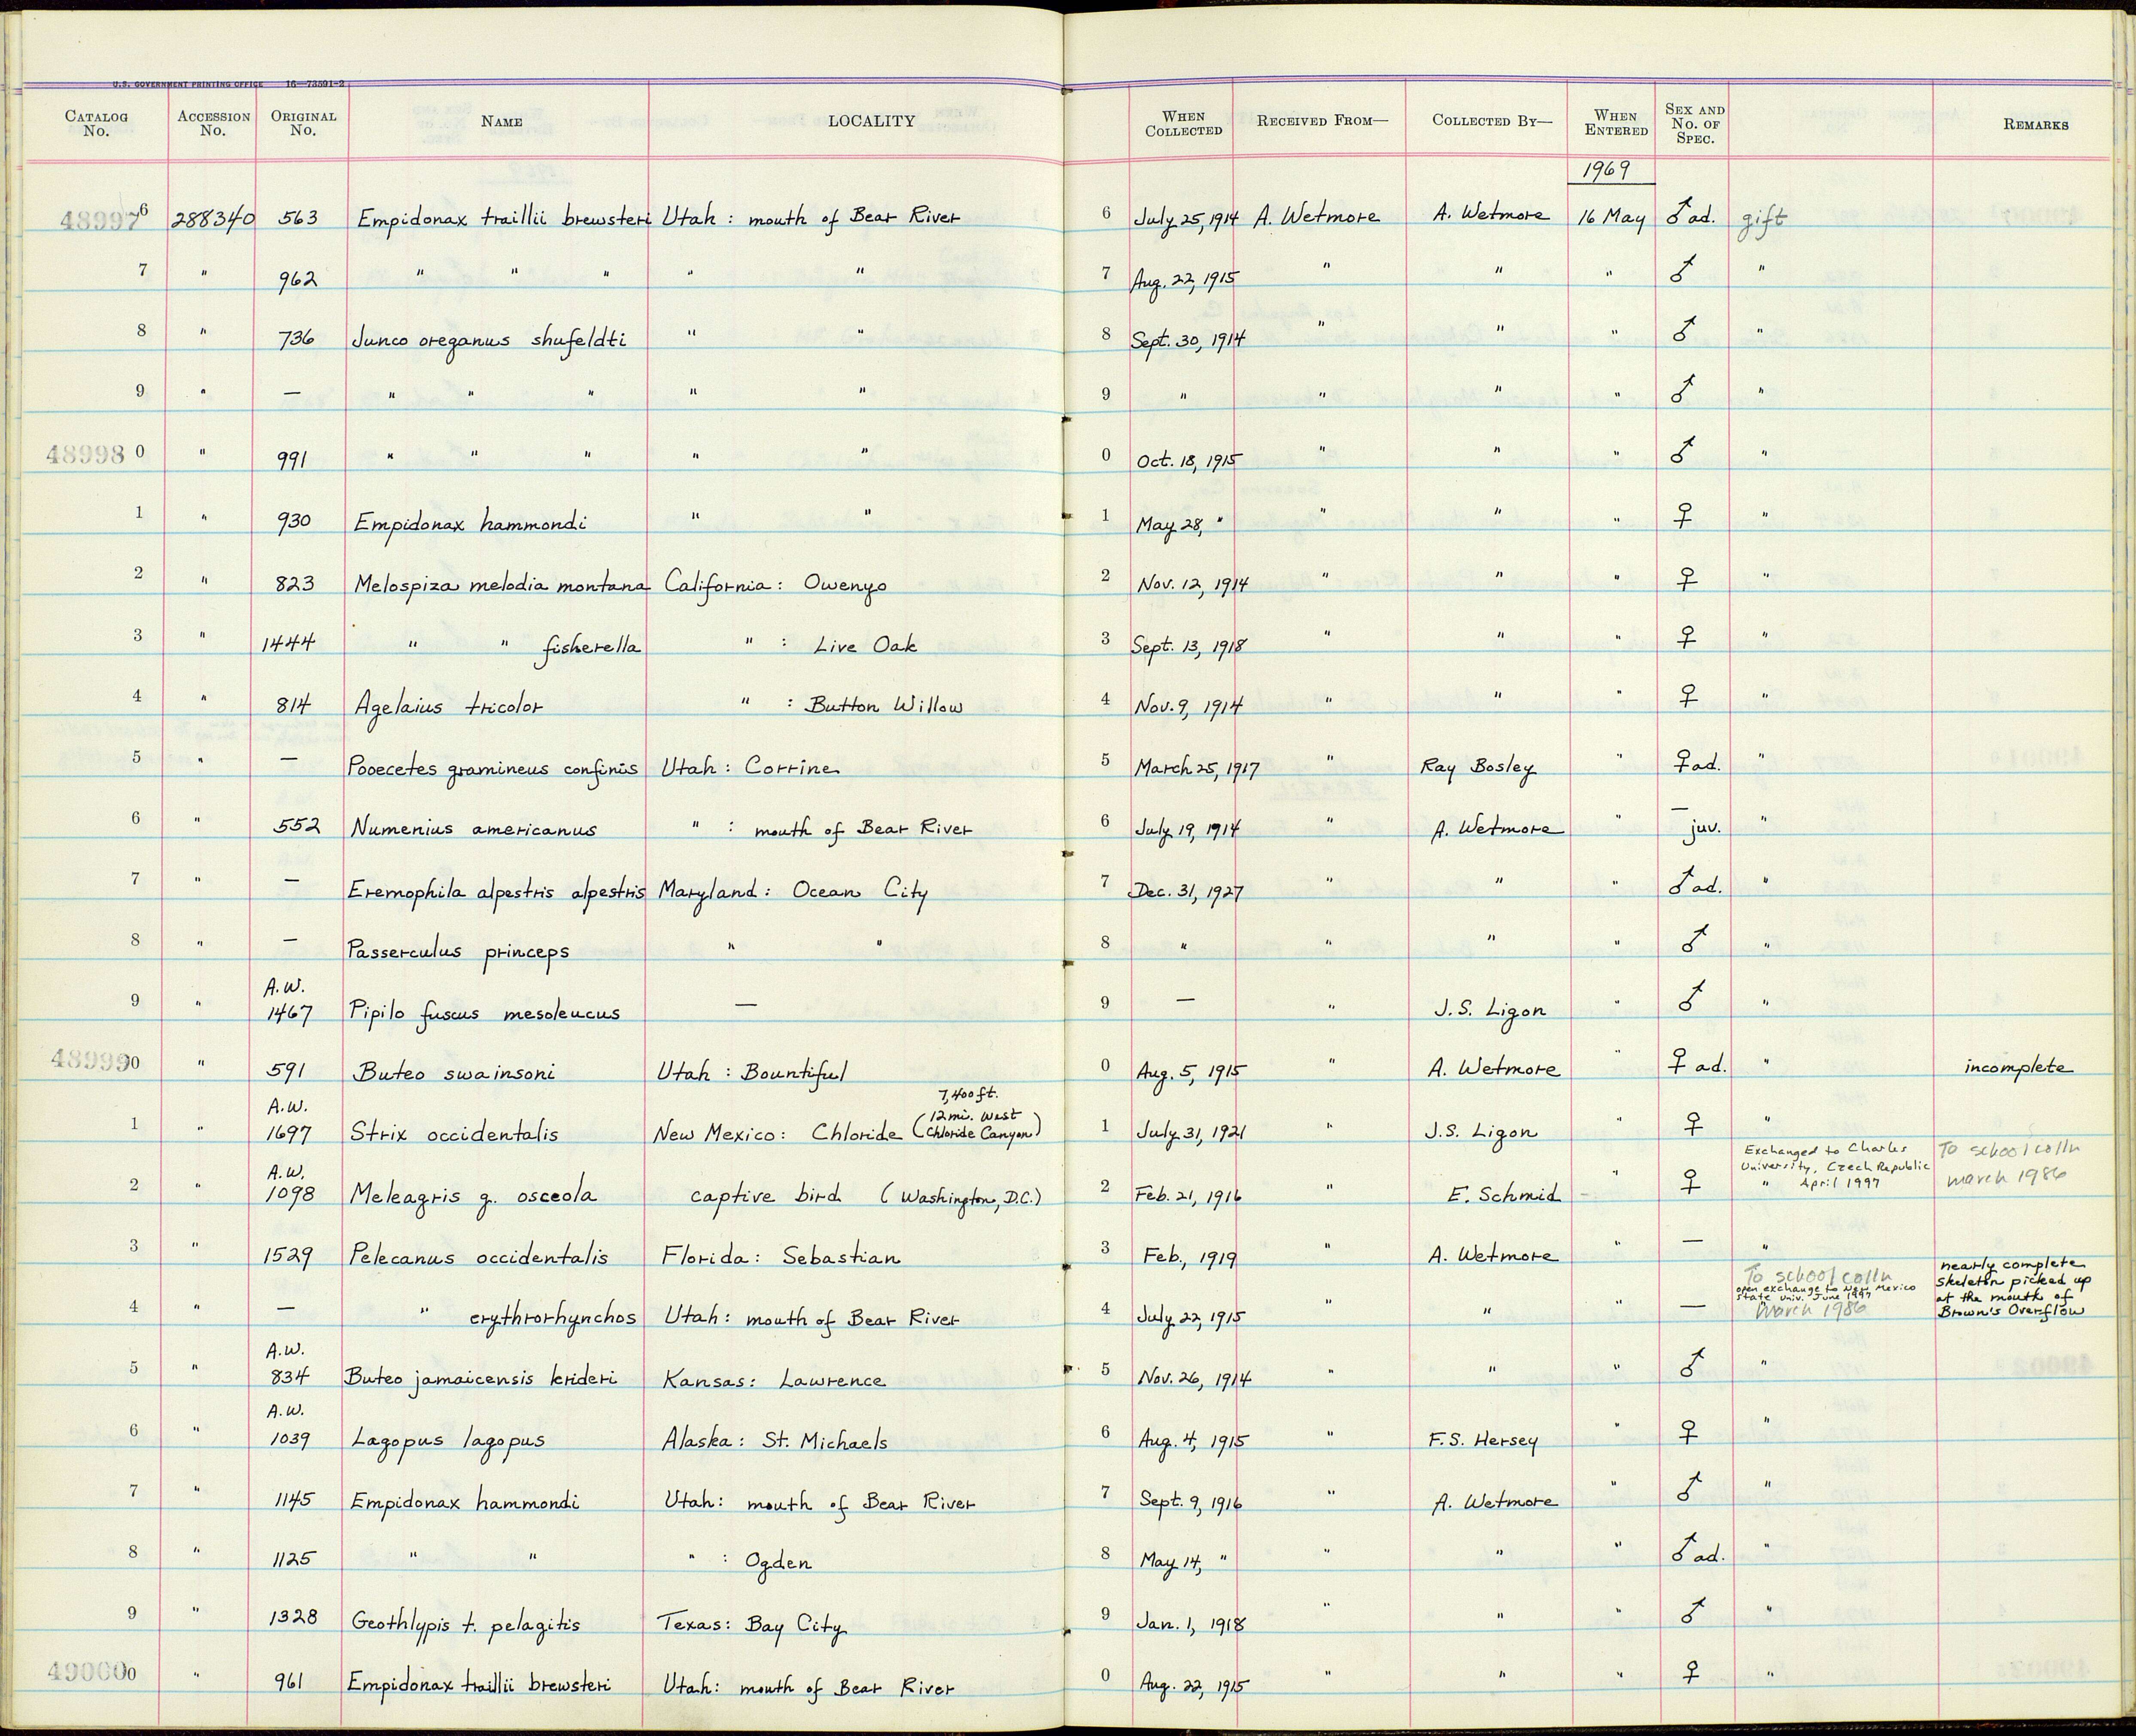 U.S. GOVERNMENT PRINTING OFFICE 16—73591-2
CATALOG No. ACCESSION No. ORIGINAL No. NAME LOCALITY WHEN COLLECTED RECEIVED FROM— COLLECTED BY— WHEN ENTERED SEX AND No. OF SPEC. REMARKS
1969
489976 288340 563 Empidonax traillii brewsteri Utah : mouth of Bear River 6 July 25, 1914 A. Wetmore A. Wetmore 16 May ♂ ad. gift
7 " 962 " " " " " 7 Aug. 22, 1915 " " " ♂ "
8 " 736 Junco oreganus shufeldti " " 8 Sept. 30, 1914 " " " ♂ "
9 " — " " " " " 9 " " " " ♂ "
48998 0 " 991 " " " " " 0 Oct. 18, 1915 " " " ♂ "
1 " 930 Empidonax hammondi " " 1 May 28, " " " " ♀ "
2 " 823 Melospiza melodia montana California : Owenyo 2 Nov. 12, 1914 " " " ♀ "
3 " 1444 " " fisherella " : Live Oak 3 Sept. 13, 1918 " " " ♀ "
4 " 814 Agelaius tricolor " : Button Willow 4 Nov. 9, 1914 " " " ♀ "
5 " — Pooecetes gramineus confinis Utah : Corrine 5 March 25, 1917 " Ray Bosley " ♀ ad. "
6 " 552 Numenius americanus " : mouth of Bear River 6 July 19, 1914 " A. Wetmore " — juv. "
7 " — Eremophila alpestris alpestris Maryland : Ocean City 7 Dec. 31, 1927 " " " ♂ ad. "
8 " — Passerculus princeps " " 8 " " " " ♂ "
9 " A.W. 1467 Pipilo fuscus mesoleucus — 9 — " J.S. Ligon " ♂ "
489990 " 591 Buteo swainsoni Utah : Bountiful 0 Aug. 5, 1915 " A. Wetmore " ♀ ad. " incomplete
7,400 ft.
1 " A.W. 1697 Strix occidentalis New Mexico : Chloride (12 mi. West Chloride Canyon) 1 July 31, 1921 " J.S. Ligon " ♀ "
Exchanged to Charles University, Czech Republic April 1997
To school colln march 1986
2 " A.W. 1098 Meleagris g. osceola captive bird (Washington, D.C.) 2 Feb. 21, 1916 " E. Schmid " ♀ "
3 " 1529 Pelecanus occidentalis Florida : Sebastian 3 Feb., 1919 " A. Wetmore " — "
To school colln
open exchange to New Mexico State Univ. June 1997
March 1986
nearly complete
skeleton picked up
at the mouth of
Brown's Overflow
4 " — " erythrorhynchos Utah : mouth of Bear River 4 July 22, 1915 " " " — "
5 " A.W. 834 Buteo jamaicensis krideri Kansas : Lawrence 5 Nov. 26, 1914 " " " ♂ "
6 " A.W. 1039 Lagopus lagopus Alaska : St. Michaels 6 Aug. 4, 1915 " F.S. Hersey " ♀ "
7 " 1145 Empidonax hammondi Utah : mouth of Bear River 7 Sept. 9, 1916 " A. Wetmore " ♂ "
8 " 1125 " " " : Ogden 8 May 14, " " " " ♂ ad. "
9 " 1328 Geothlypis t. pelagitis Texas : Bay City 9 Jan. 1, 1918 " " " ♂ "
490000 " 961 Empidonax traillii brewsteri Utah : mouth of Bear River 0 Aug. 22, 1915 " " " ♀ "